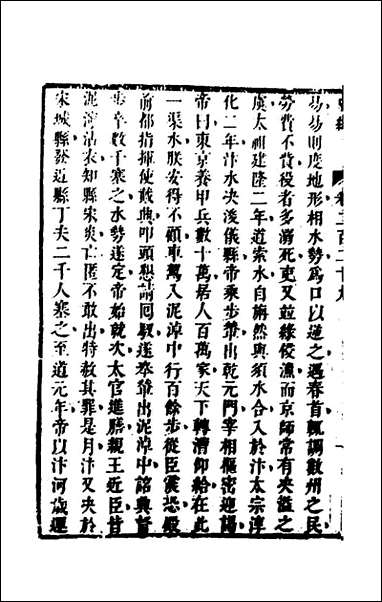 卷三百二十九
易易則度地形相水勢爲口以逼之遇春首輒調數州之民
勞費不貲役者多溺死吏又並緣侵漁而京師常有决溢之
虞太祖建隆二年道索水自旃然與須水合入於汴太宗淳
化二年汴水决浚儀縣帝乘步輦出乾元門宰相樞密迎謁
帝曰東京養甲兵數十萬居人百萬家天下轉漕仰給在此
一渠水朕安得不顧車駕入泥淖中行百餘步從臣震恐殿
前都指揮使戴興叩頭懇請回馭遂捧輦出泥淖中詔興督
步卒數千塞之水勢遂定帝始就次太官進膳親王近臣皆
泥濘沾衣知縣宋炎亡匿不敢出特赦其罪是月汴又决於
宋城縣發近縣丁夫二千人塞之至道元年帝以汴河歲運